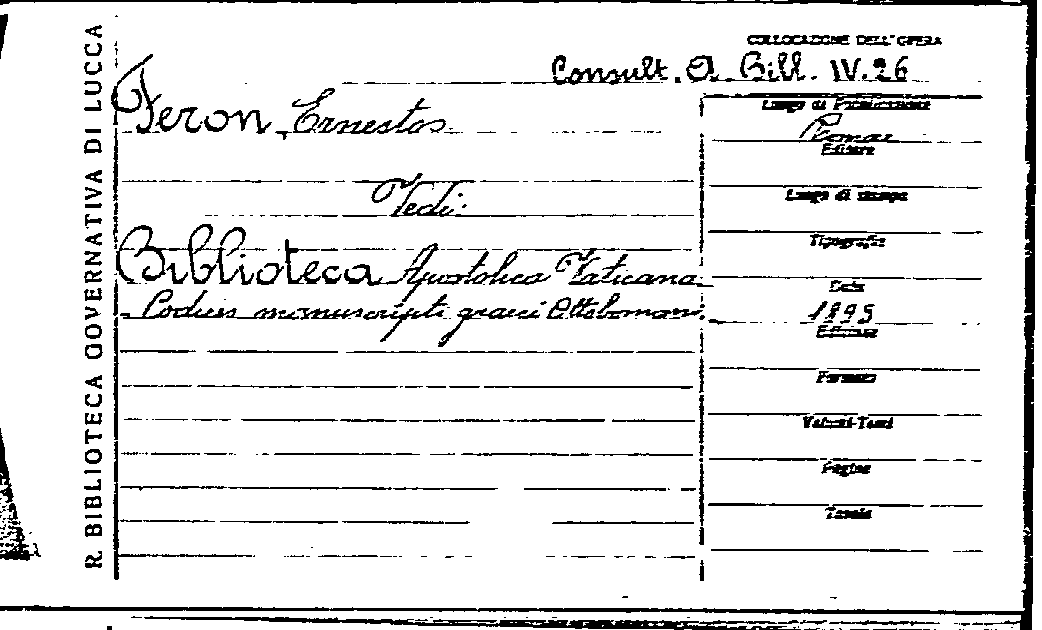 R. BIBLIOTECA GOVERNATIVA DI LUCCA
COLLOCAZIONE DELL'OPERA
Consult. A. Bibl. IV. 26
Feron, Ernestos
Vedi:
Biblioteca Apostolica Vaticana
- Codices manuscripti graeci Ottoboniani.
Luogo di Pubblicazione
Roma
Editore
Luogo di stampa
Tipografia
Data
1895
Edizione
Formato
Volumi-Tomi
Pagine
Tavole